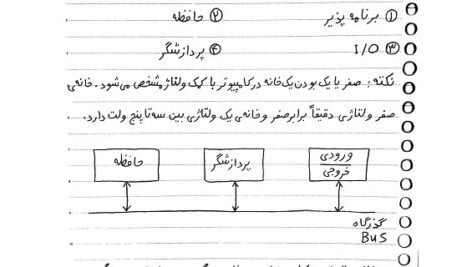 ① برنامه پذیر ② حافظه
③ I/O ④ پردازشگر
نکته: صفر یا یک بودن یک خانه در کامپیوتر با کمک ولتاژ مشخص می‌شود. خانه‌ی
صفر ولتاژی دقیقاً برابر صفر و خانه‌ی یک ولتاژی بین سه تا پنج ولت دارد.
حافظه پردازشگر ورودی
خروجی
گذرگاه
BUS